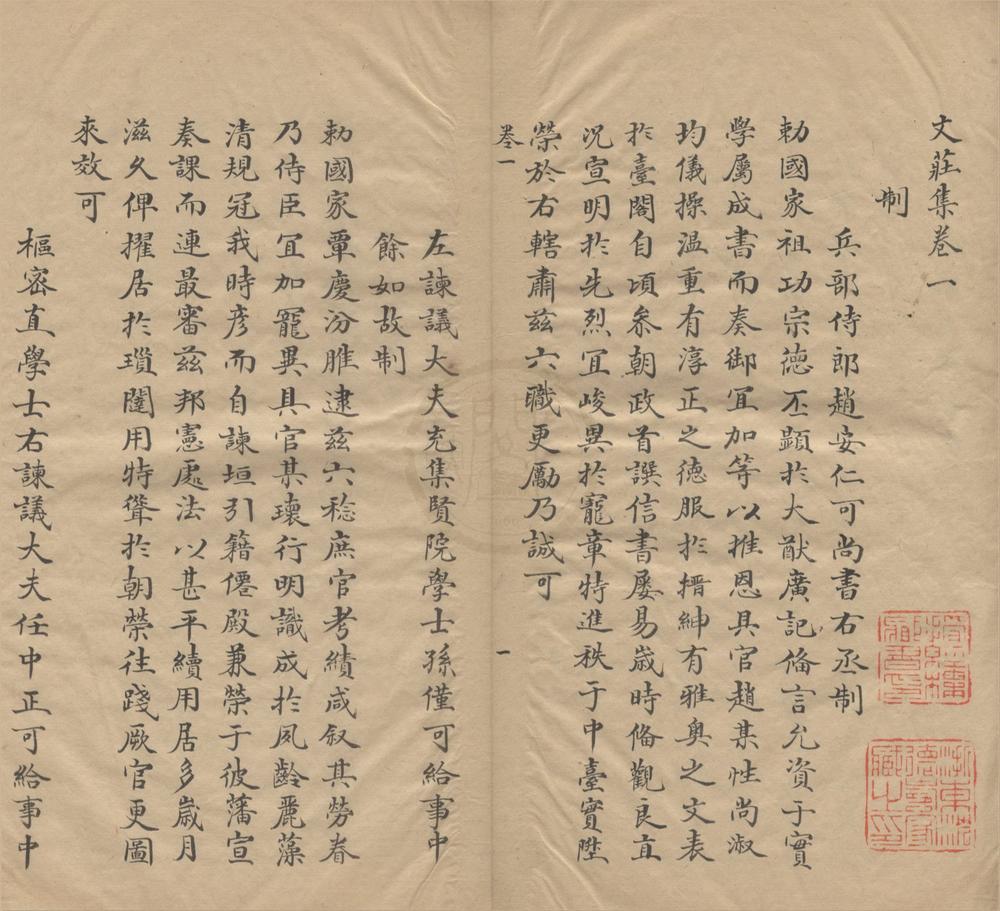 文莊集卷一
制
兵部侍郎趙安仁可尚書右丞制
勅國家祖功宗德丕顯於大猷廣記俻言允資于實
學屬成書而奏御宜加等以推恩具官趙某性尚淑
均儀操溫重有淳正之德服於搢紳有雅奥之文表
於臺閣自頃叅朝政首譔信書屡易嵗時俻觀良直
况宣明於先烈宜峻異於寵章特進秩于中臺實陞
榮於右轄肅兹六職更勵乃誠可
卷一
一
左諫議大夫充集賢院學士孫僅可給事中
餘如故制
勅國家覃慶汾脽逮兹六稔庶官考績咸叙其勞眷
乃侍臣冝加寵異具官某瓌行明識成於夙齡麗藻
清規冠我時彦而自諫垣引籍僊殿兼榮于彼藩宣
奏課而連最審兹邦憲處法以甚平續用居多嵗月
滋久俾擢居於瑣闥用特聳於朝榮往踐厥官更圖
來效可
樞宻直學士右諫議大夫任中正可給事中